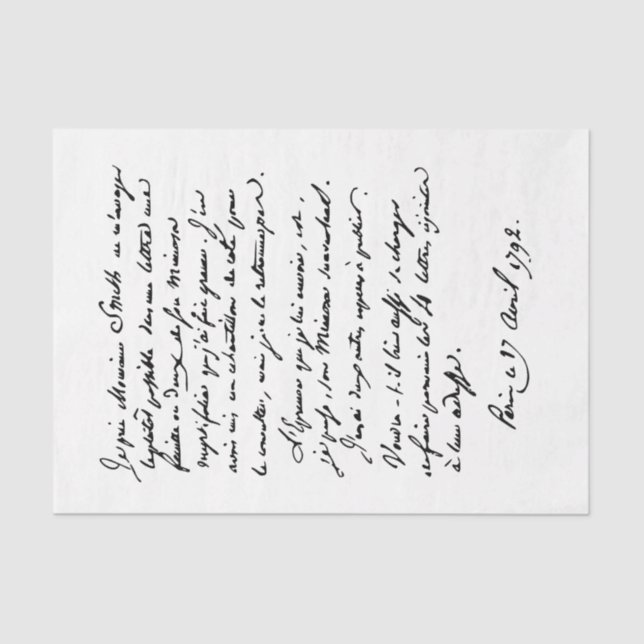 Je prie Monsieur Smith de m'envoyer
le plutôt possible dans une lettre une
feuille ou deux de son Mimosa
que j'ai fait graver. J'en
avois mis un echantillon de coté pour
le consulter, mais je ne le retrouve pas.
L'Epreuve que je lui envoie, est,
je pense, son Mimosa
J'en ai deux autres especes à publier.
Voudra-t-il bien aussi se charger
de faire parvenir les 4 lettres, cy jointes
à leur adresse.
Paris le 17 Avril 1792.